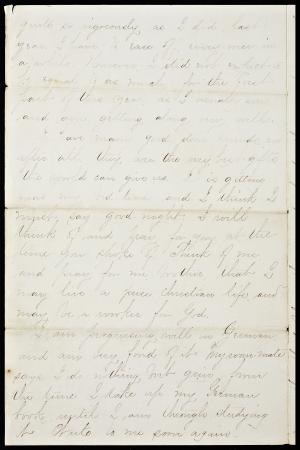 quite so vigorously, as I did last
year I have to race off every now
a while. However I did not exercise
equal as much for the first
part of this year, as I usually
and am getting along very well.
I have many good dear friends,
after all they are the
the world can give us. It is getting
near my bed time and I think I
must say good night. I will
think of and pray for you at the
time you spoke of. Think of me
and pray for me brother that I
may live a pure Christian life, and
may be a worker for God.
I am progressing well in German
and am very fond of it. My room mate
says I do nothing but grin from
the time I take up my German
book until I am through studying
it. Write to me soon again.